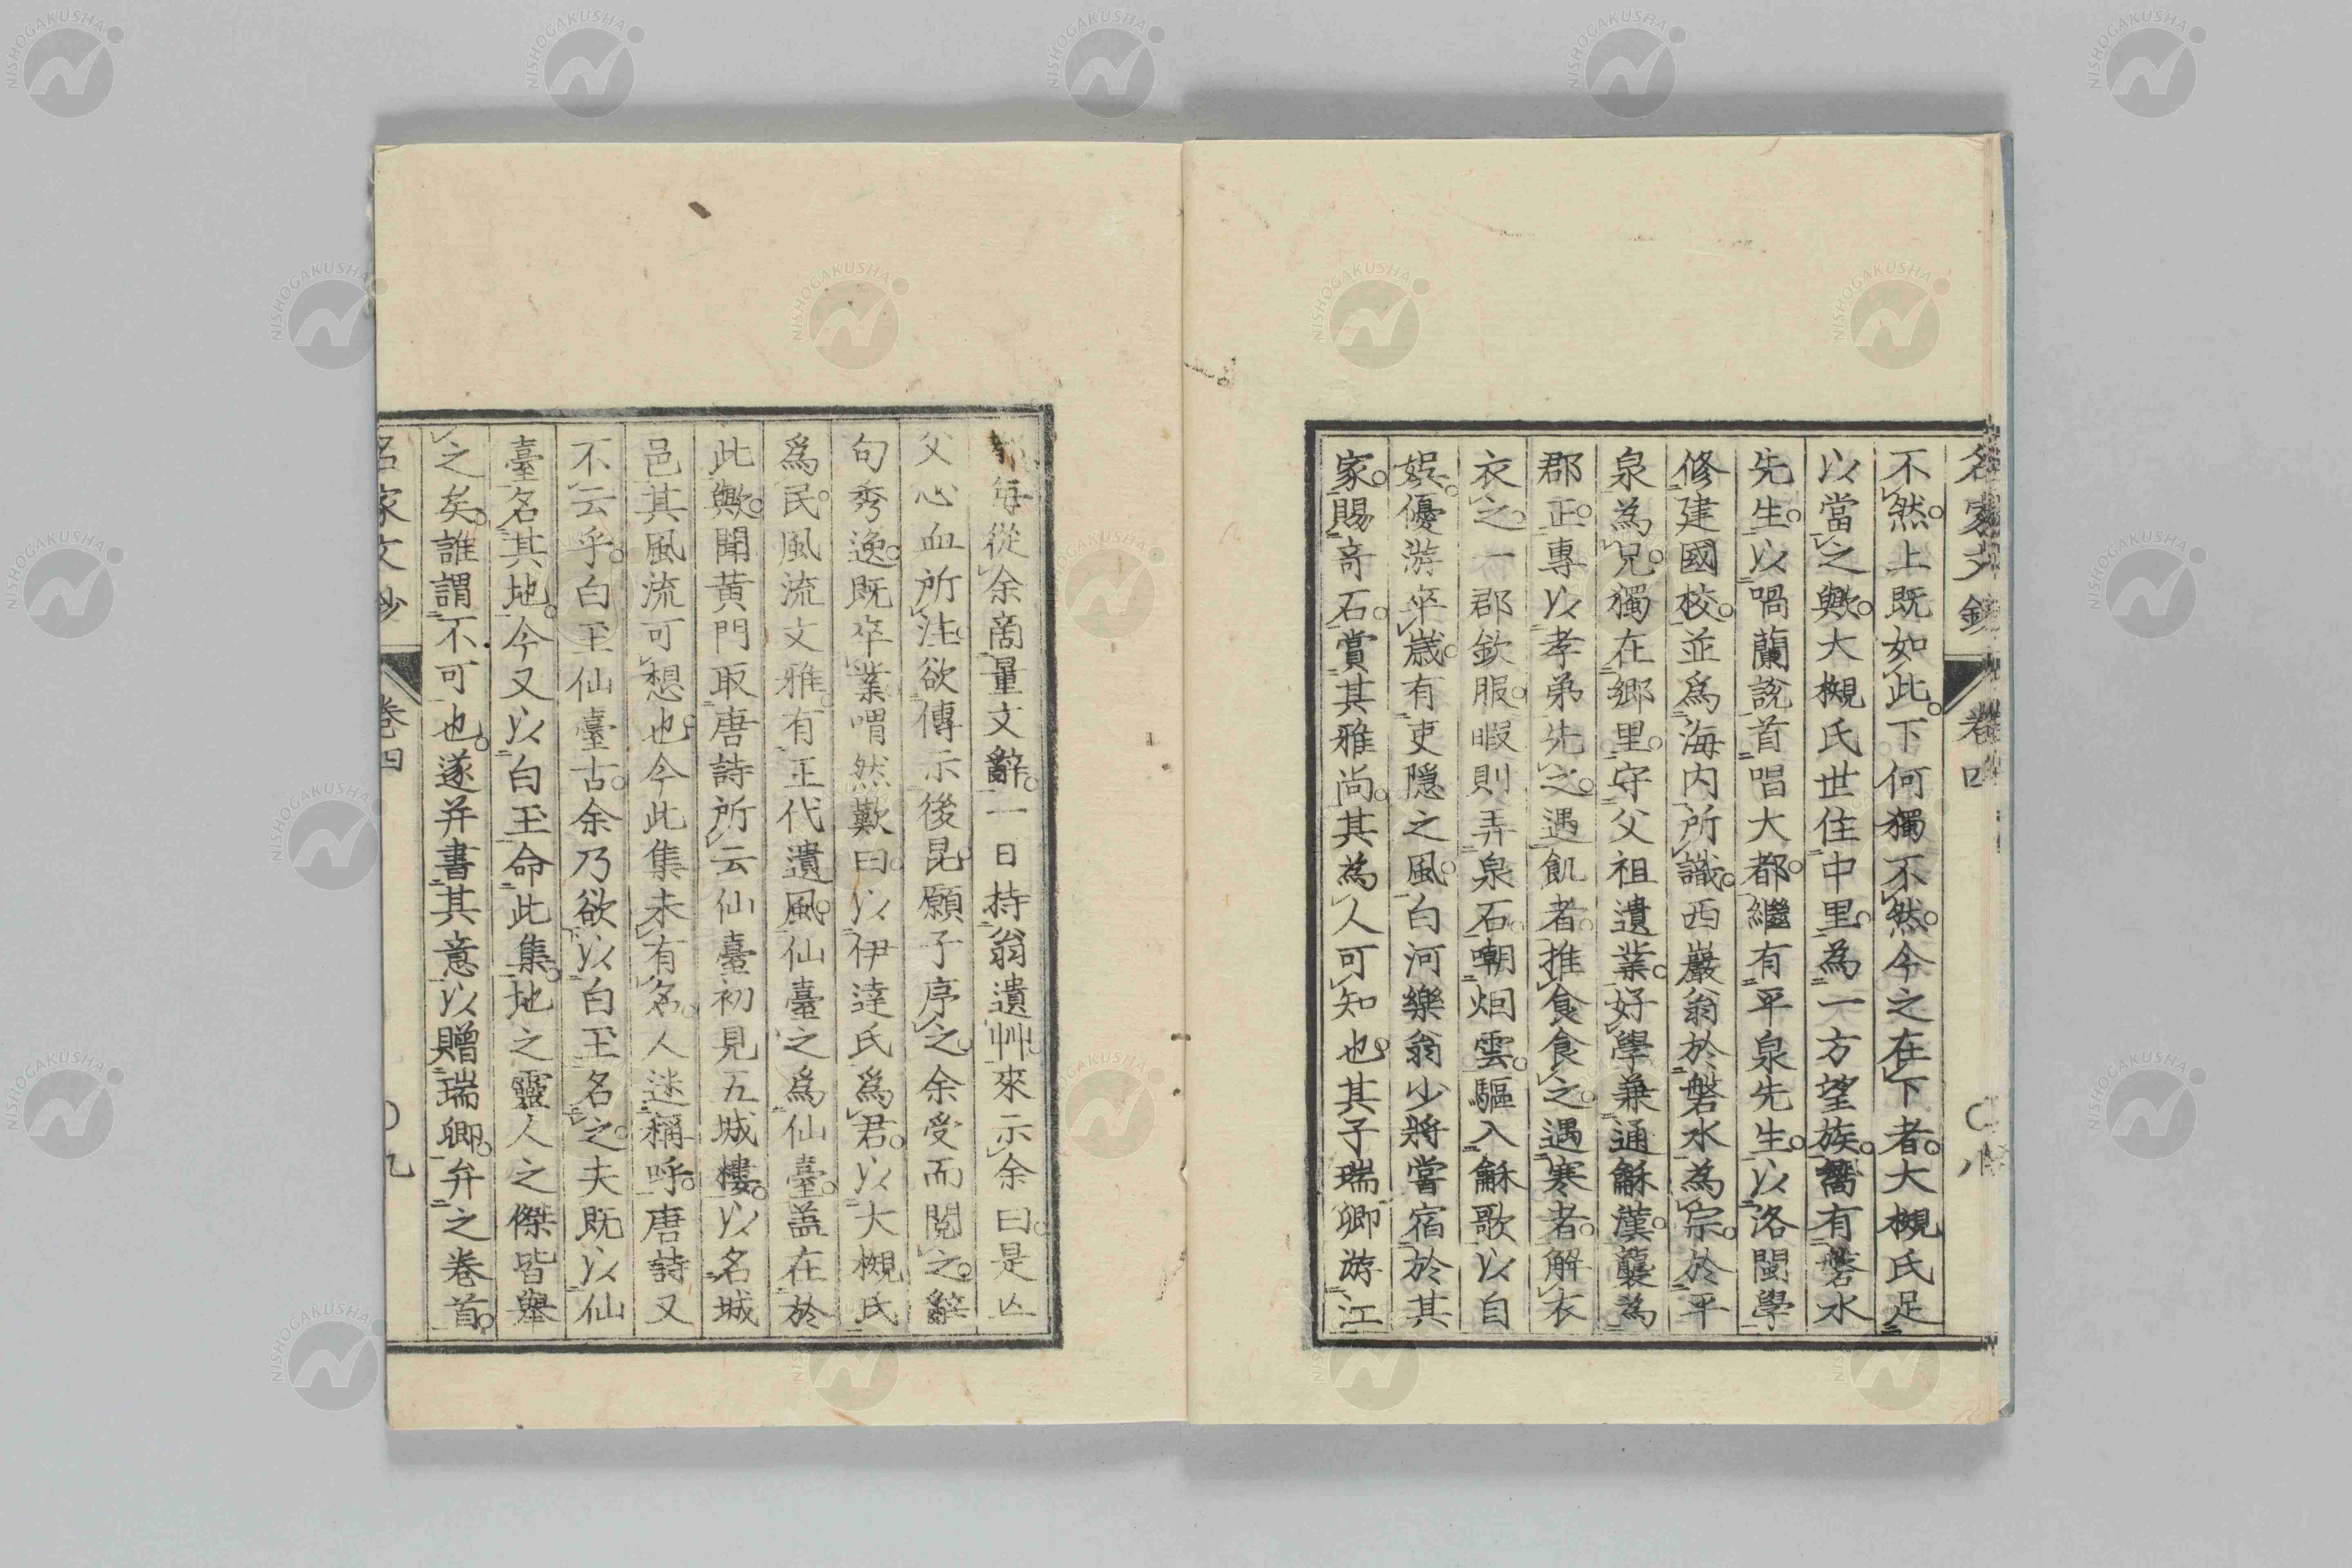 名家文鈔 卷四 ○八
不然。上既如此。下何獨不然。今之在下者。大槻氏足
以當之歟。大槻氏世住中里。為一方望族。嚮有磐水
先生。以喎蘭說首唱大都。繼有平泉先生。以洛閩學
修建國校。並為海内所識。西巖翁於磐水為宗。於平
泉為兄。獨在鄉里。守父祖遺業。好學兼通龢漢。襲為
郡正。專以孝弟先之。遇飢者。推食食之。遇寒者。解衣
衣之。一郡欽服。暇則弄泉石。嘲烟雲。驅入龢歌以自
娯。優游卒歲。有吏隱之風。白河樂翁少將嘗宿於其
家。賜奇石。賞其雅尚。其為人可知也。其子瑞卿游江
每從余商量文辭。一日持翁遺艸。來示余曰。是亾
父心血所注。欲傳示後昆。願子序之。余受而閲之。辭
句秀逸。既卒業。喟然歎曰。以伊達氏爲君。以大槻氏
爲民。風流文雅。有王代遺風。仙臺之爲仙臺。盖在於
此歟。聞黄門取唐詩所云仙臺初見五城樓。以名城
邑。其風流可想也。今此集未有名。人迷稱呼。唐詩又
不云乎。白玉仙臺古。余乃欲以白玉名之。夫既以仙
臺名其地。今又以白玉命此集。地之靈人之傑皆舉
之矣。誰謂不可也。遂并書其意。以贈瑞卿。弁之卷首。
名家文鈔 卷四 ○九
NISHOGAKUSHA